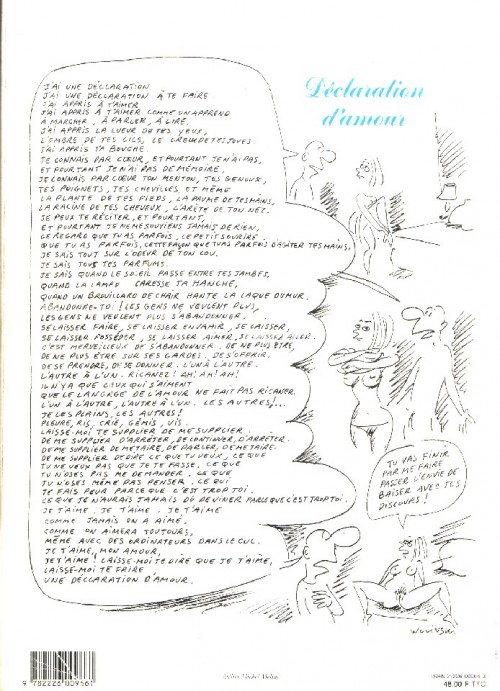 Déclaration
d'amour
J'AI UNE DÉCLARATION
J'AI UNE DÉCLARATION À TE FAIRE
J'AI APPRIS À T'AIMER
J'AI APPRIS À T'AIMER COMME ON APPREND
À MARCHER, À PARLER, À LIRE.
J'AI APPRIS LA LUEUR DE TES YEUX,
L'OMBRE DE TES CILS, LE CREUX DE TES JOUES
J'AI APPRIS TA BOUCHE.
JE CONNAIS PAR CŒUR, ET POURTANT JE N'AI PAS,
ET POURTANT JE N'AI PAS DE MÉMOIRE,
JE CONNAIS PAR CŒUR TON MENTON, TES GENOUX,
TES POIGNETS, TES CHEVILLES, ET MÊME
LA PLANTE DE TES PIEDS, LA PAUME DE TES MAINS,
LA RACINE DE TES CHEVEUX, L'ARÊTE DE TON NEZ.
JE PEUX TE RÉCITER, ET POURTANT,
ET POURTANT JE NE ME SOUVIENS JAMAIS DE RIEN,
LE REGARD QUE TU AS PARFOIS, LE PETIT SOURIRE
QUE TU AS PARFOIS, CETTE FAÇON QUE TU AS PARFOIS D'AGITER TES MAINS,
JE SAIS TOUT SUR L'ODEUR DE TON COU.
JE SAIS TOUS TES PARFUMS.
JE SAIS QUAND LE SOLEIL PASSE ENTRE TES JAMBES,
QUAND LA LAMPE CARESSE TA HANCHE,
QUAND UN BROUILLARD DE CHAIR HANTE LA LAQUE DU MUR.
ABANDONNE-TOI! LES GENS NE VEULENT PLUS,
LES GENS NE VEULENT PLUS S'ABANDONNER.
SE LAISSER FAIRE, SE LAISSER ENVAHIR, SE LAISSER,
SE LAISSER POSSÉDER, SE LAISSER AIMER, SE LAISSER ALLER.
C'EST MERVEILLEUX DE S'ABANDONNER. DE NE PLUS ÊTRE,
DE NE PLUS ÊTRE SUR SES GARDES. DE S'OFFRIR.
DE SE PRENDRE, DE SE DONNER. L'UN À L'AUTRE.
L'AUTRE À L'UN. RICANEZ! AH! AH! AH!
IL N'Y A QUE CEUX QUI S'AIMENT
QUE LE LANGAGE DE L'AMOUR NE FAIT PAS RICANER.
L'UN À L'AUTRE, L'AUTRE À L'UN. LES AUTRES!...
JE LES PLAINS, LES AUTRES!
PLEURE, RIS, CRIE, GÉMIS, VIS.
LAISSE-MOI TE SUPPLIER DE ME SUPPLIER.
DE ME SUPPLIER D'ARRÊTER, DE CONTINUER, D'ARRÊTER.
DE ME SUPPLIER DE ME TAIRE, DE PARLER, DE ME TAIRE.
DE ME SUPPLIER DE DIRE CE QUE TU VEUX, CE QUE
TU NE VEUX PAS QUE JE TE FASSE. CE QUE
TU N'OSES PAS ME DEMANDER. CE QUE
TU N'OSES MÊME PAS PENSER. CE QUI
TE FAIS PEUR PARCE QUE C'EST TROP TOI.
CE QUE JE N'AURAIS JAMAIS DÛ DEVINER PARCE QUE C'EST TROP TOI.
JE T'AIME. JE T'AIME. JE T'AIME
COMME JAMAIS ON A AIMÉ.
COMME ON AIMERA TOUJOURS,
MÊME AVEC DES ORDINATEURS DANS LE CUL.
JE T'AIME, MON AMOUR,
JE T'AIME! LAISSE-MOI TE DIRE QUE JE T'AIME,
LAISSE-MOI TE FAIRE
UNE DÉCLARATION D'AMOUR.
TU VAS FINIR
PAR ME FAIRE
PASSER L'ENVIE DE
BAISER AVEC TES
DISCOURS!
WOLINSKI
9 782226 009661
48,00 F TTC